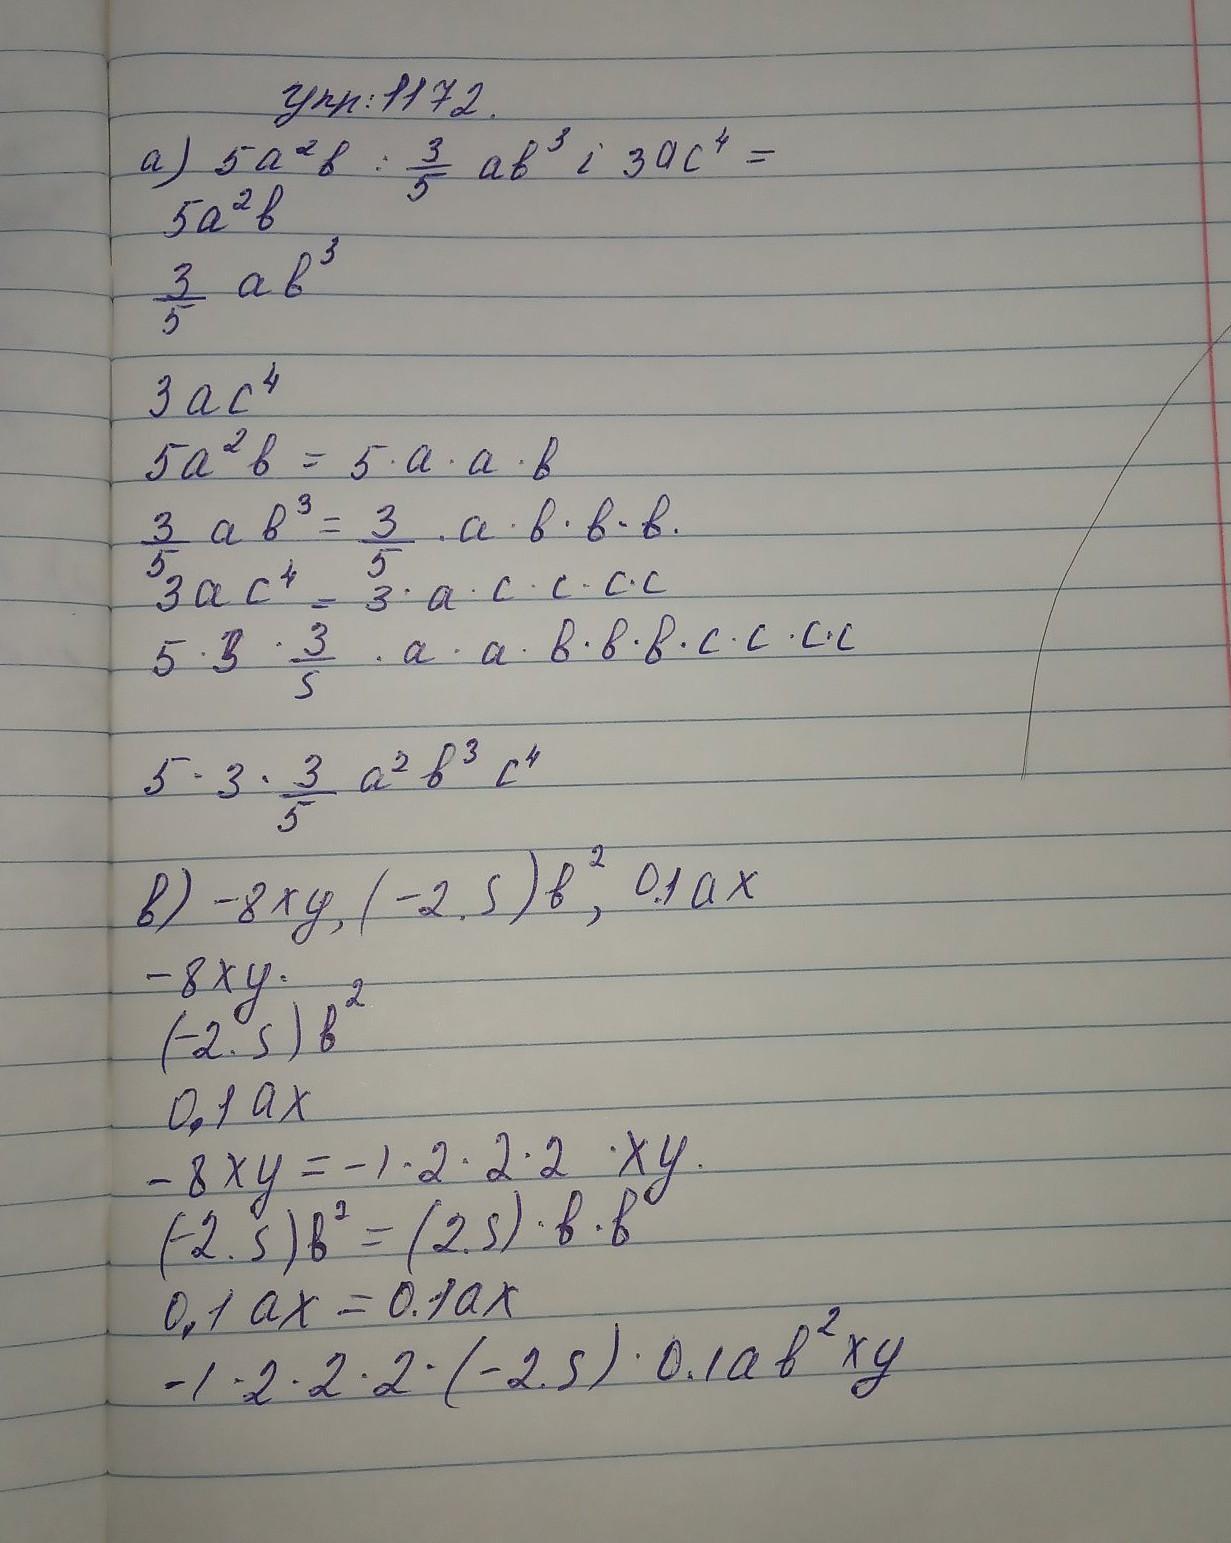 Упр: 1172.
а) 5a²b : 3/5 ab³ і 3ac⁴ =
5a²b
3/5 ab³
3ac⁴
5a²b = 5·a·a·b
3/5 ab³ = 3/5 ·a·b·b·b.
3ac⁴ = 3·a·c·c·c·c
5·3·3/5·a·a·b·b·b·c·c·c·c
5·3·3/5 a²b³c⁴
в) -8xy, (-2.5)b², 0.1ax
-8xy.
(-2.5)b²
0,1ax
-8xy = -1·2·2·2·xy.
(-2.5)b² = (2.5)·b·b
0,1ax = 0.1ax
-1·2·2·2·(-2.5)·0.1ab²xy